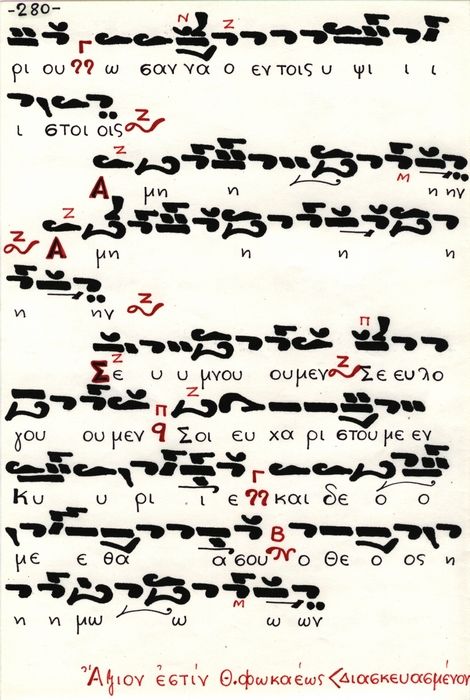 -280-
Ν Ζ
Γ
ρι ου ω σαν να ο εν τοις υ ψι ι ι
ι στοι οις Ζ
Ζ
Α μη η η ην
Μ
Ζ
Ζ Α μη η η η
η ην Ζ
Π
Σε υ υ μνου ου μεν Ζ Σε ευ λο
Ζ
Π Ζ
γου ου μεν q Σοι ευ χα ρι στου με εν
Γ
Κυ υ ρι ι ε και δε ο ο
Β
με ε θα α σου ο Θε ο ος η
η η μω ω ω ων
Μ
Ἄξιον ἐστίν Θ. Φωκαέως <διασκευασμένον